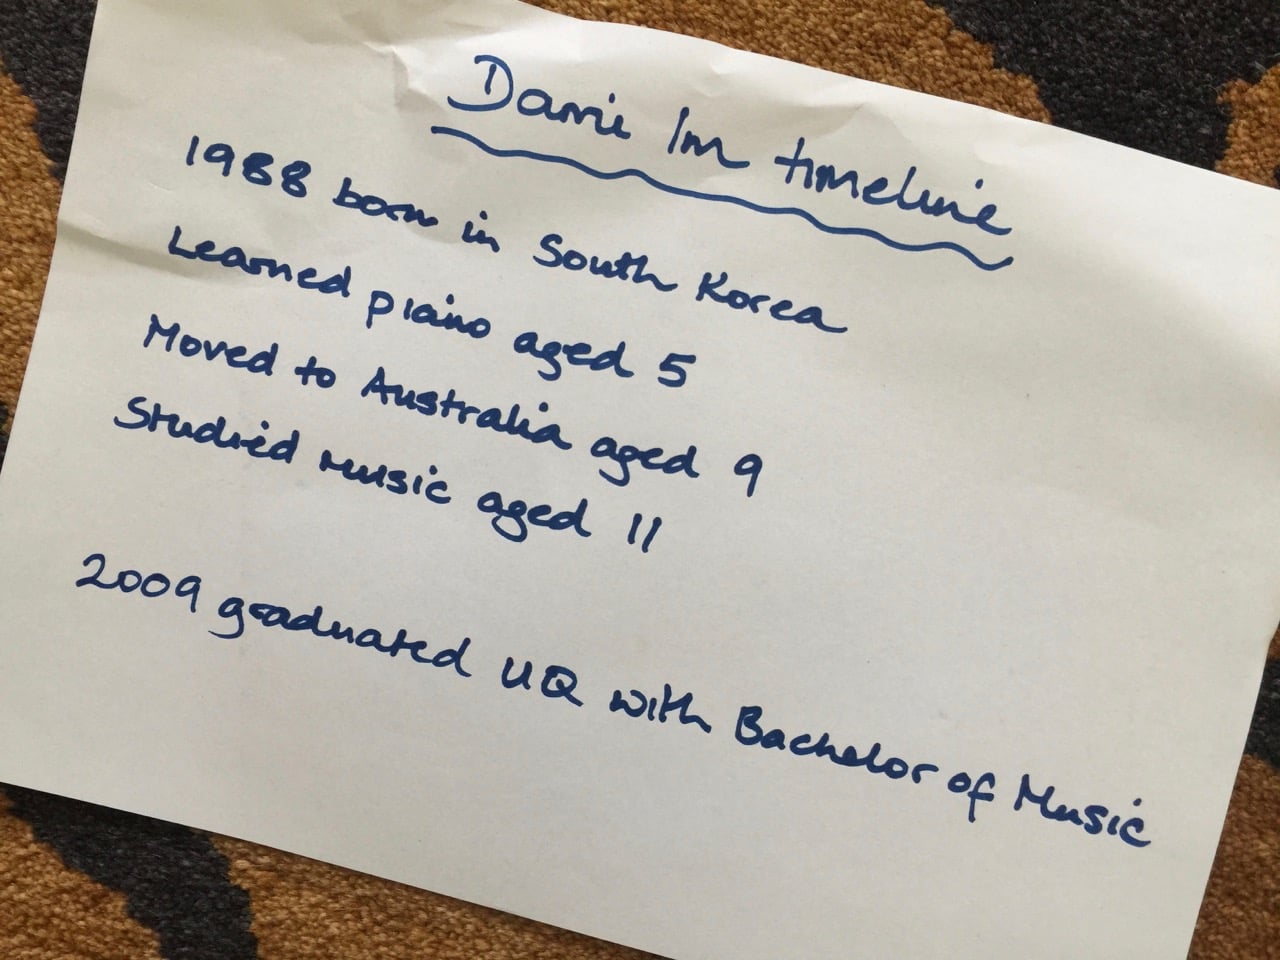 Dami Im timeline
1988 born in South Korea
Learned piano aged 5
Moved to Australia aged 9
Studied music aged 11
2009 graduated UQ with Bachelor of Music